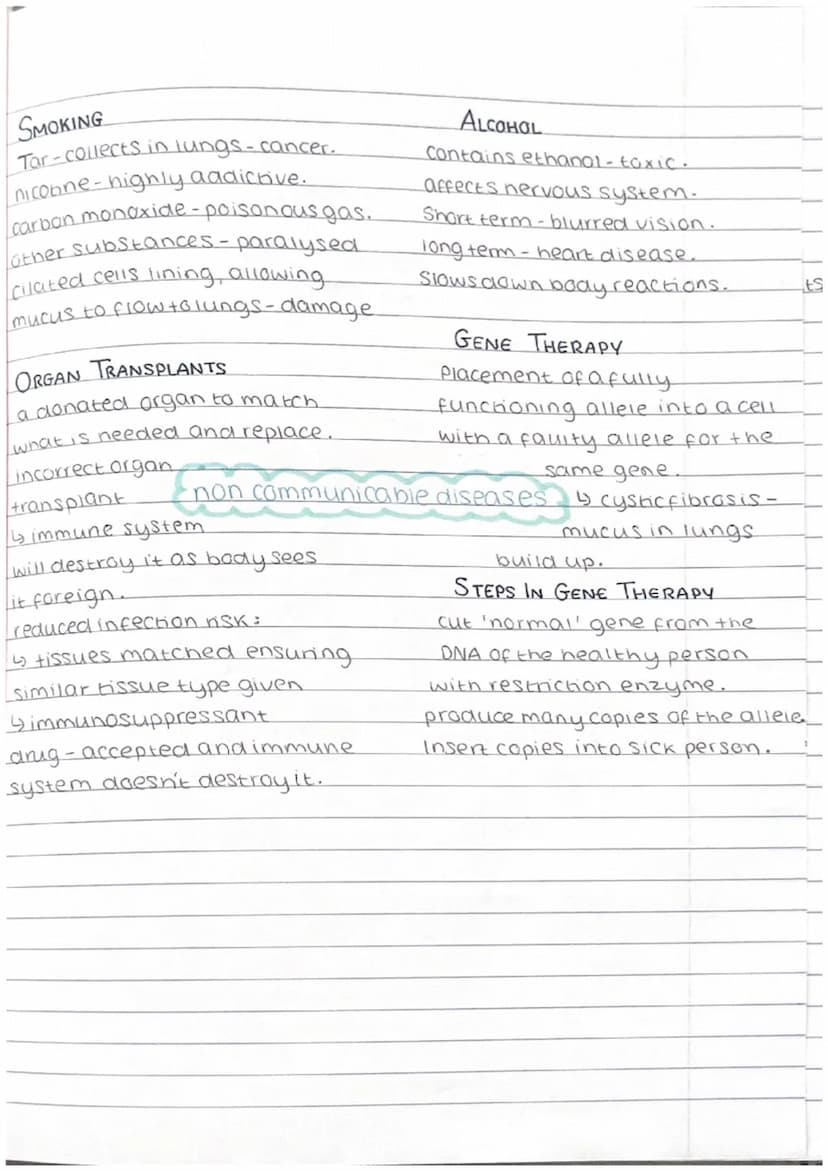 SMOKING
Tar - collects in lungs - cancer.
nicotine - highly addictive.
carbon monoxide - poisonous gas.
other substances - paralysed
cilated cells lining, allowing
mucus to flow to lungs - damage
ORGAN TRANSPLANTS
a donated organ to match
what is needed and replace.
incorrect organ
transplant
↳ immune system
will destroy it as body sees
it foreign.
reduced infection risk:
↳ tissues matched ensuring
similar tissue type given
↳ immunosuppressant
drug - accepted and immune
system doesn't destroy it.
non communicable diseases
ALCOHOL
contains ethanol - toxic.
affects nervous system.
Short term - blurred vision.
long term - heart disease.
Slows down body reactions.
ts
GENE THERAPY
Placement of a fully
functioning allele into a cell
with a faulty allele for the
same gene.
↳ cystic fibrosis -
mucus in lungs
build up.
STEPS IN GENE THERAPY
cut 'normal' gene from the
DNA of the healthy person
with restriction enzyme.
produce many copies of the allele.
Insert copies into sick person.